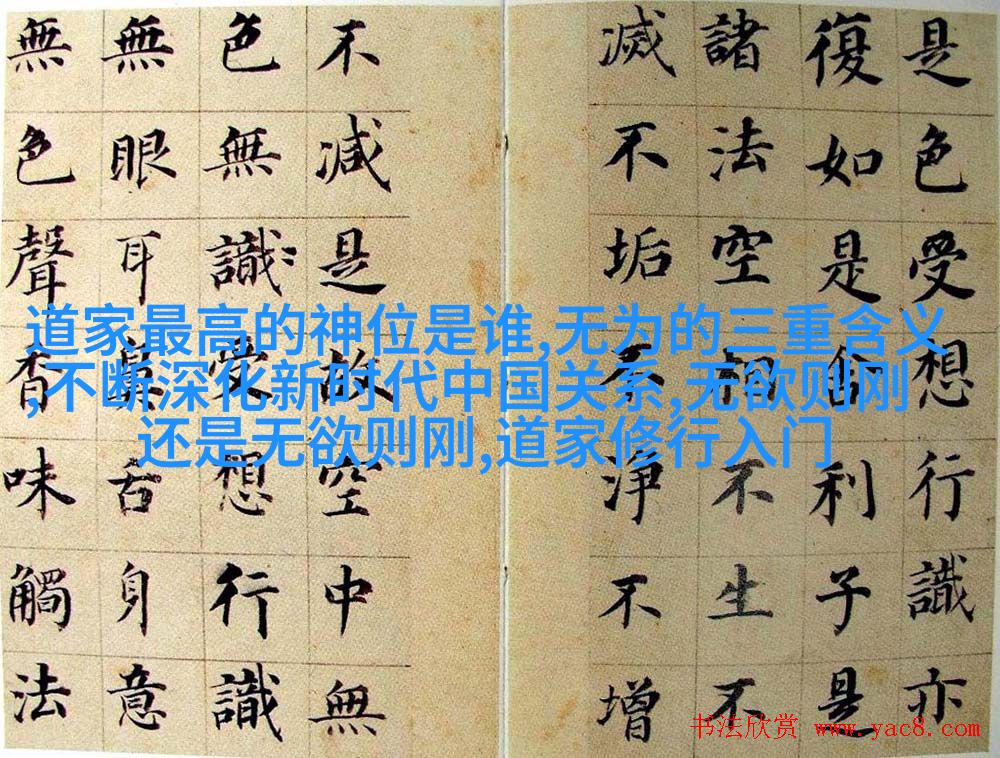 是色受想行識亦
復如是舍利子是
諸法空相不生不
滅不垢不淨不增
不減是故空中無
色無識受想行識
無眼耳鼻舌身意
無色聲香味觸法
道家最高的神位是谁,无为的三重含义
,不断深化新时代中国关系,无欲则刚
还是无欲则刚,道家修行入门
书法欣赏 www.yac8.com